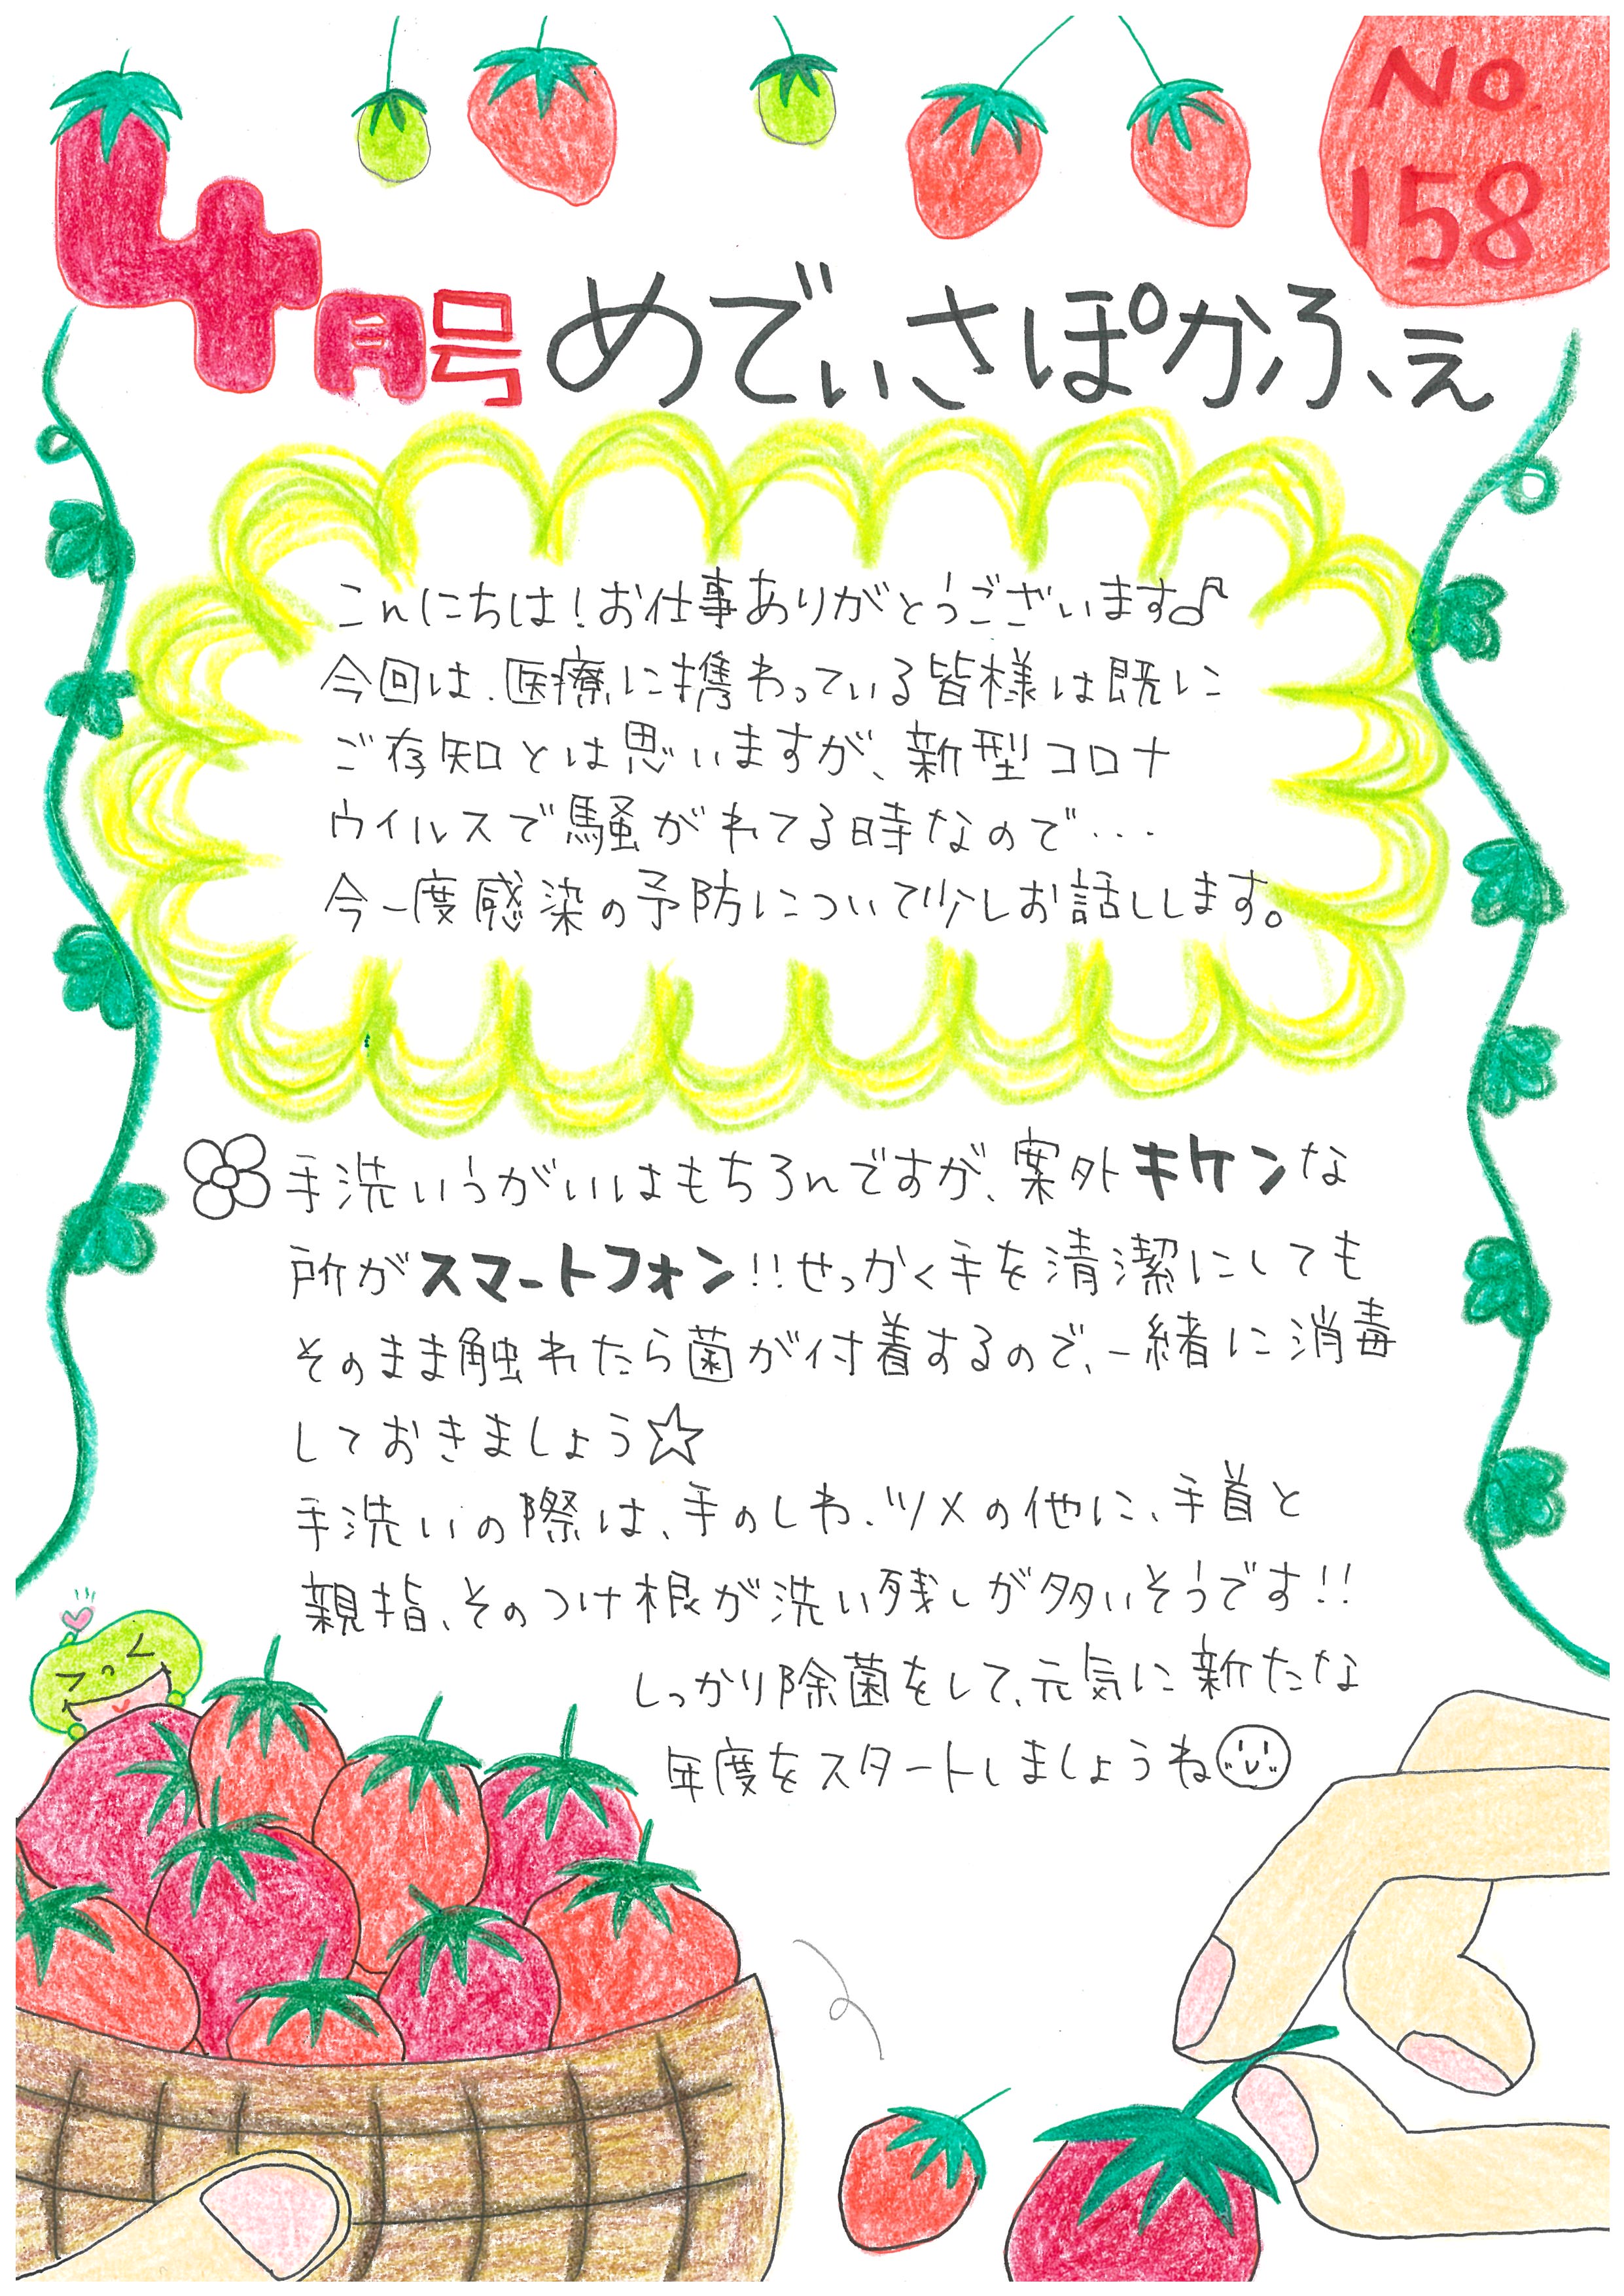 No.
158
4月号 めでぃさぽかふぇ
こんにちは!お仕事ありがとうございます♪
今回は、医療に携わっている皆様は既に
ご存知とは思いますが、新型コロナ
ウイルスで騒がれてる時なので…
今一度感染の予防について少しお話しします。
手洗いうがいはもちろんですが、案外キケンな
所がスマートフォン!!せっかく手を清潔にしても
そのまま触れたら菌が付着するので、一緒に消毒
しておきましょう☆
手洗いの際は、手のしわ、ツメの他に、手首と
親指、そのつけ根が洗い残しが多いそうです!!
しっかり除菌をして、元気に新たな
年度をスタートしましょうね